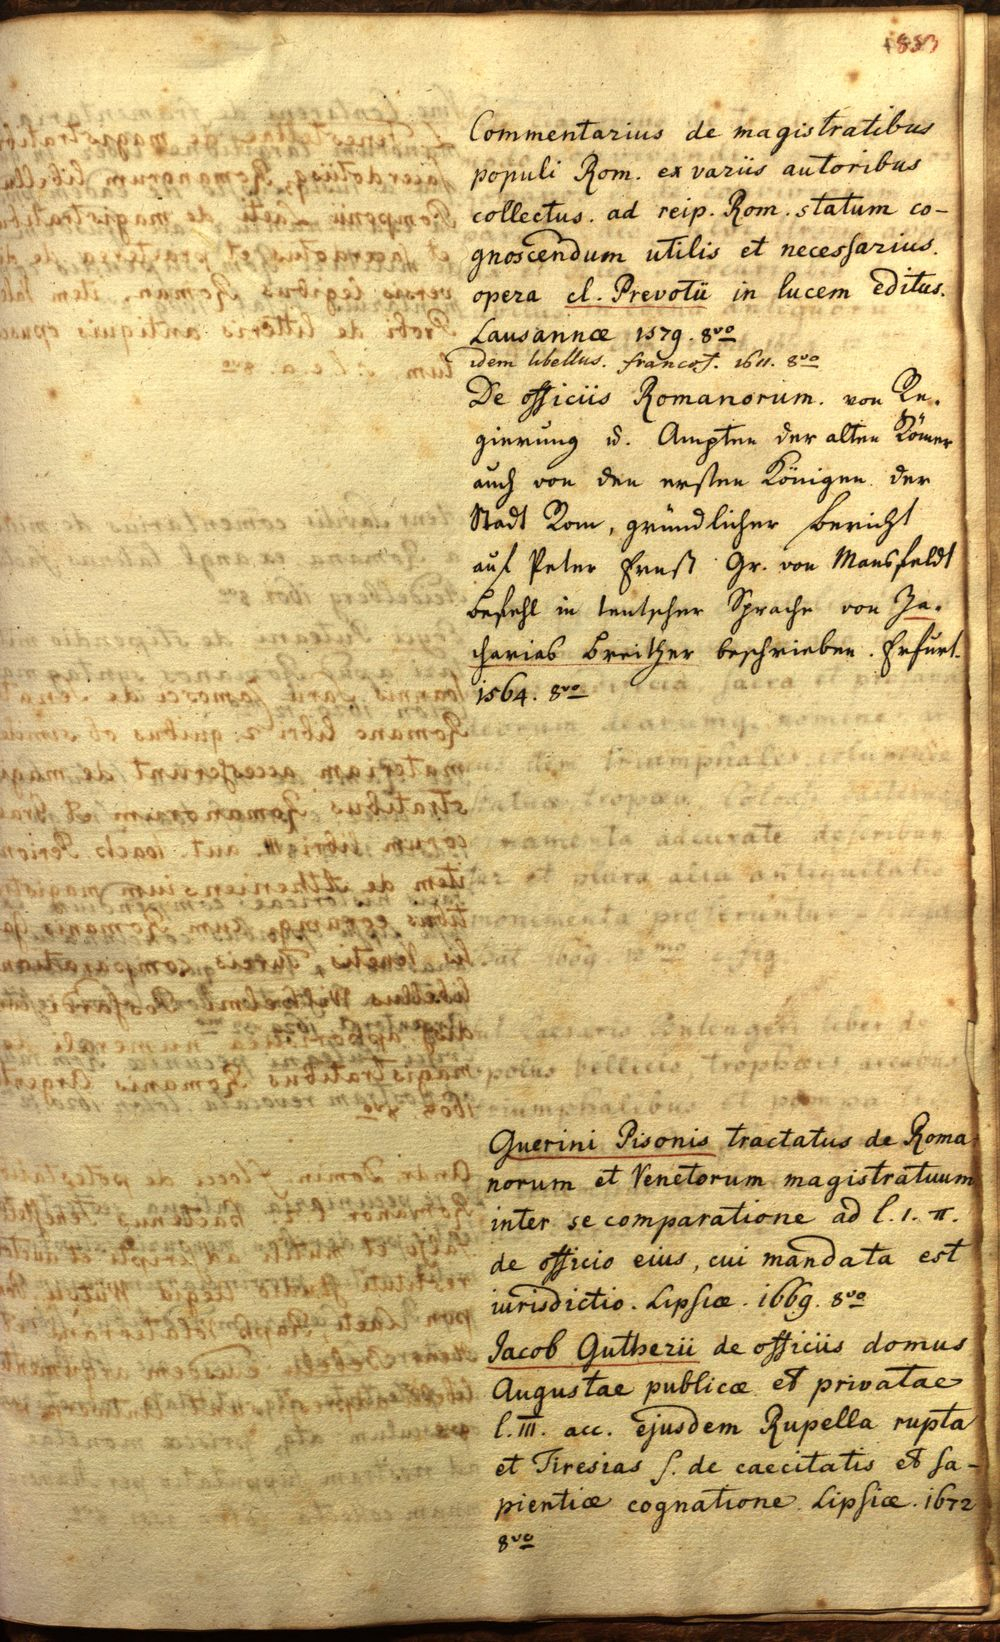 1833
Commentarius de magistratibus
populi Rom. ex variis autoribus
collectus. ad reip. Rom. statum co-
gnoscendum utilis et necesſarius.
opera cl. Prevotii in lucem editus.
Lausannæ 1579. 8vo
idem libellus. francof. 1611. 8vo
De officiis Romanorum. von Re-
gierung u. Ampten der alten Römer
auch von den ersten Königen der
Stadt Rom, gründlicher Bericht
auf Peter Ernst Gr. von Mansfeldt
befehl in teutscher Sprache von Za-
charias Breither beschrieben. Erfurt.
1564. 8vo
Guerini Pisonis tractatus de Roma
norum et Venetorum magistratuum
inter se comparatione ad l. 1. π.
de officio eius, cui mandata est
iurisdictio. Lipſiæ. 1669. 8vo
Jacob Gutherii de officiis domus
Augustae publicæ et privatae
l. III. acc. ejusdem Rupella rupta
et Tiresias ſ. de caecitatis et ſa-
pientiæ cognatione. Lipſiæ. 1672
8vo